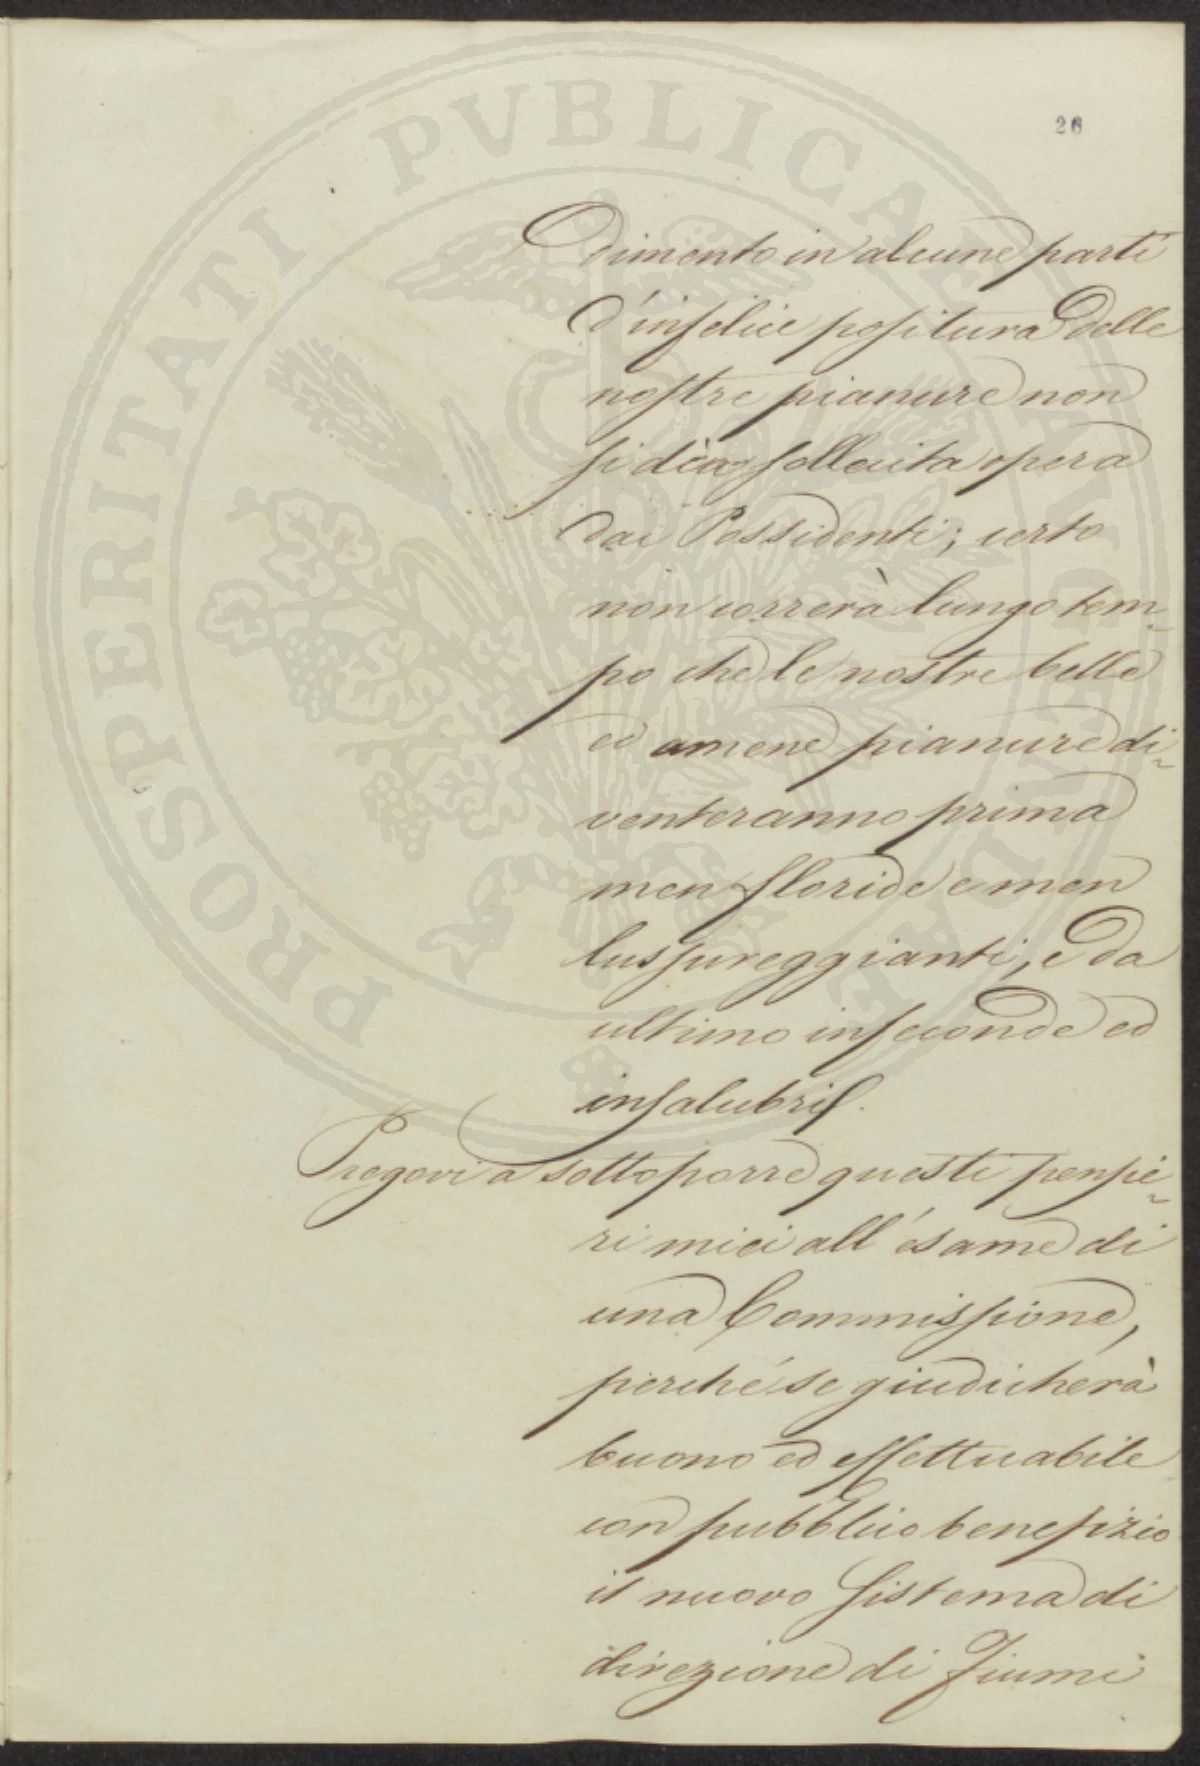 PROSPERITATI PVBLICAE AVGENDAE
26
dimento in alcune parti
d'infelice positura delle
nostre pianure non
si dèa sollecita opera
dai Possidenti; certo
non correrà lungo tem-
po che le nostre belle
ed amene pianure di-
venteranno prima
men floride e men
lussureggianti, e da
ultimo infeconde ed
insalubri.
Pregovi a sottoporre questi pensie-
ri miei all'esame di
una Commissione,
perché se giudicherà
buono ed effettuabile
con pubblico benefizio
il nuovo sistema di
direzione di Fiumi